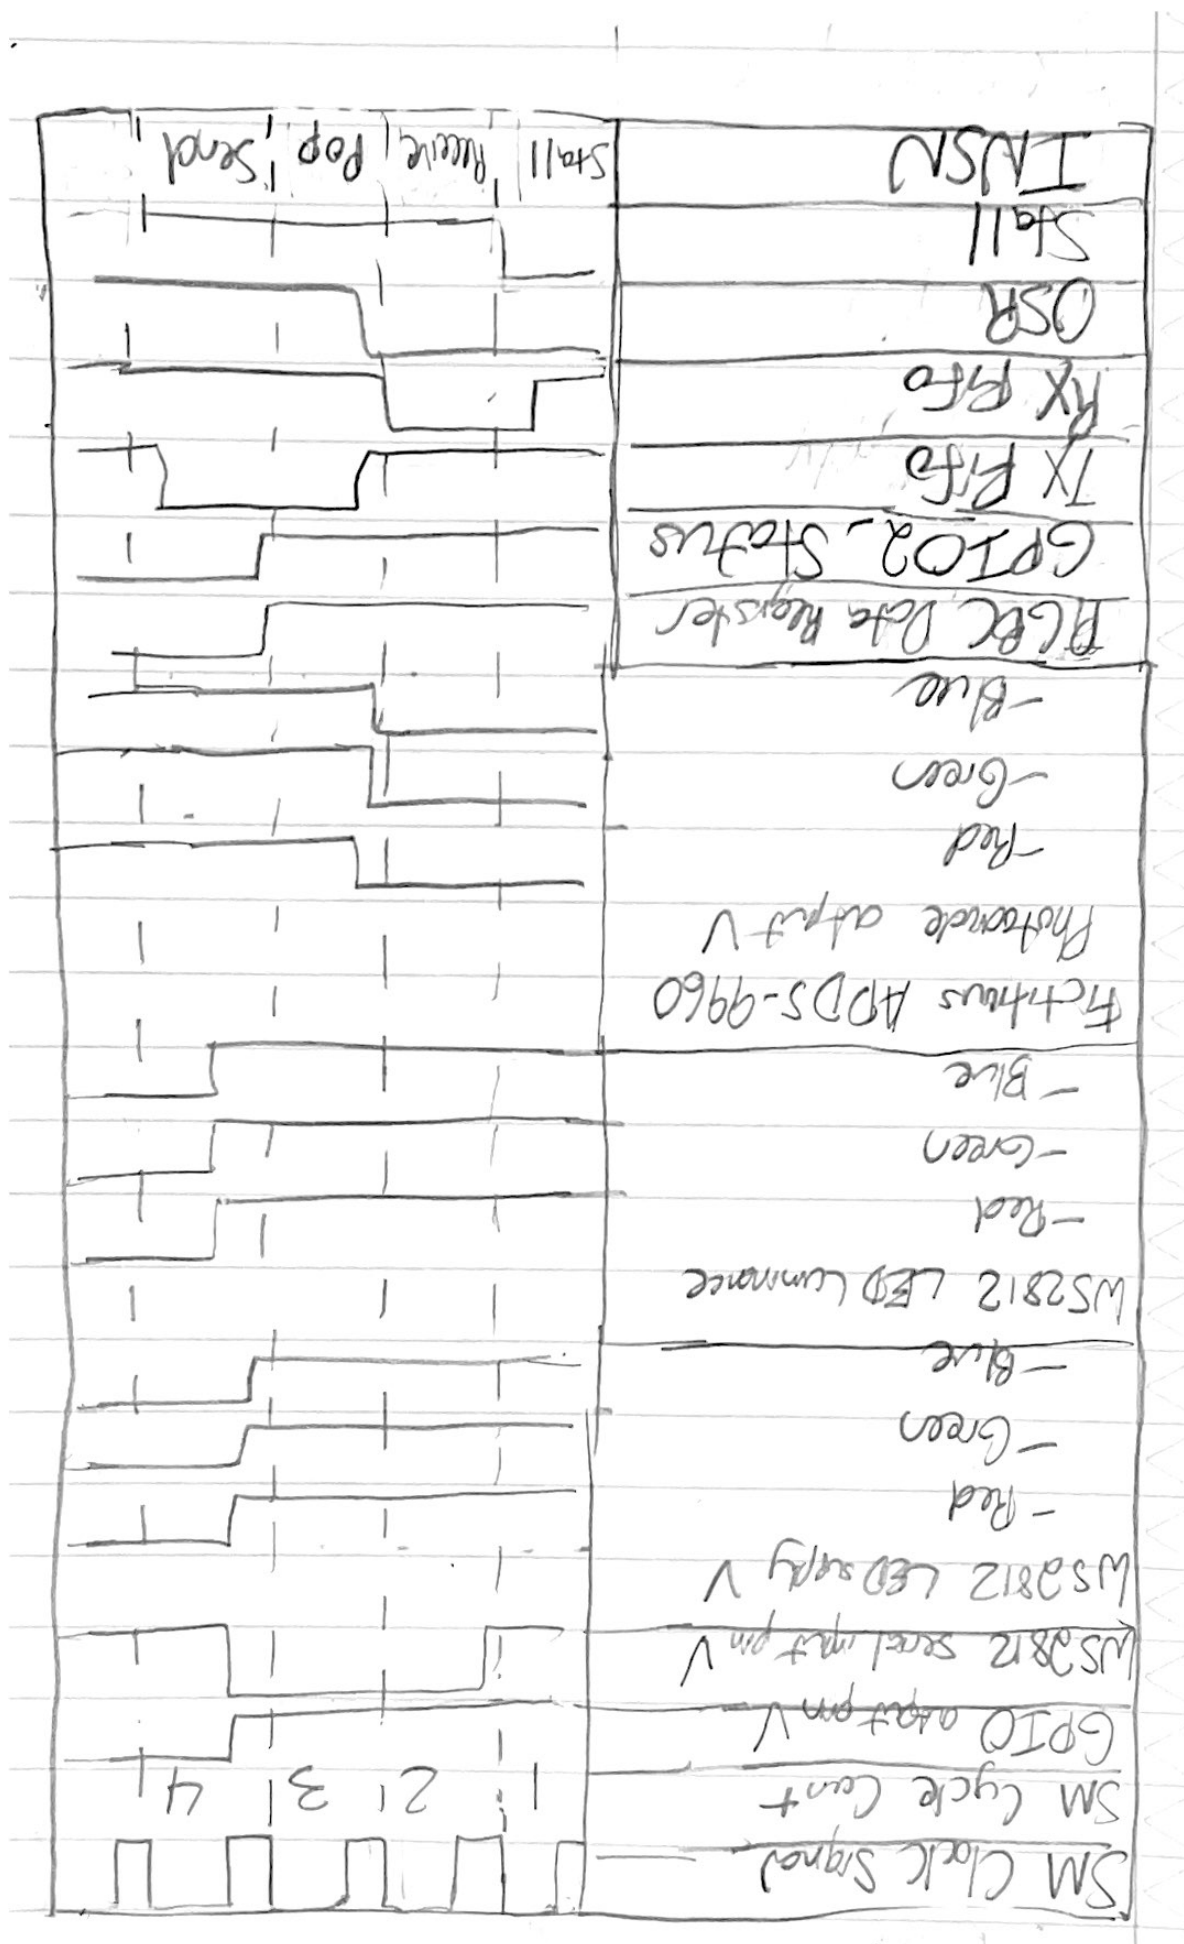 SM Clock Signal
SM Cycle Count 1 2 3 4
GPIO output pin V
WS2812 serial input pin V
WS2812 LED supply V
- Red
- Green
- Blue
WS2812 LED Luminance
- Red
- Green
- Blue
Fictitious APDS-9960
Photodiode output V
- Red
- Green
- Blue
RGBC Data Register
GPIO2_Status
TX FiFo
RX FiFo
OSR
Stall
INSN Stall Receive Pop Send